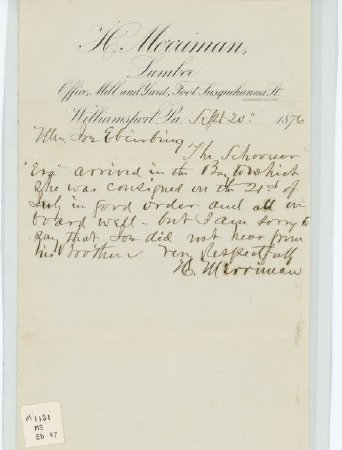 H. Merriman,
Lumber
Office, Mill and Yard, Foot Susquehanna St.
Williamsport, Pa. Sept 20" 1876
Mr. Joe
The Schooner
"Eva" arrived in the Bay to which
she was consigned on the 21st of
July in good order and all on
board well - but I am sorry to
say that Joe did not hear from
his brother Very Respectfully
H. Merriman
M 1131
MS
Eb 47